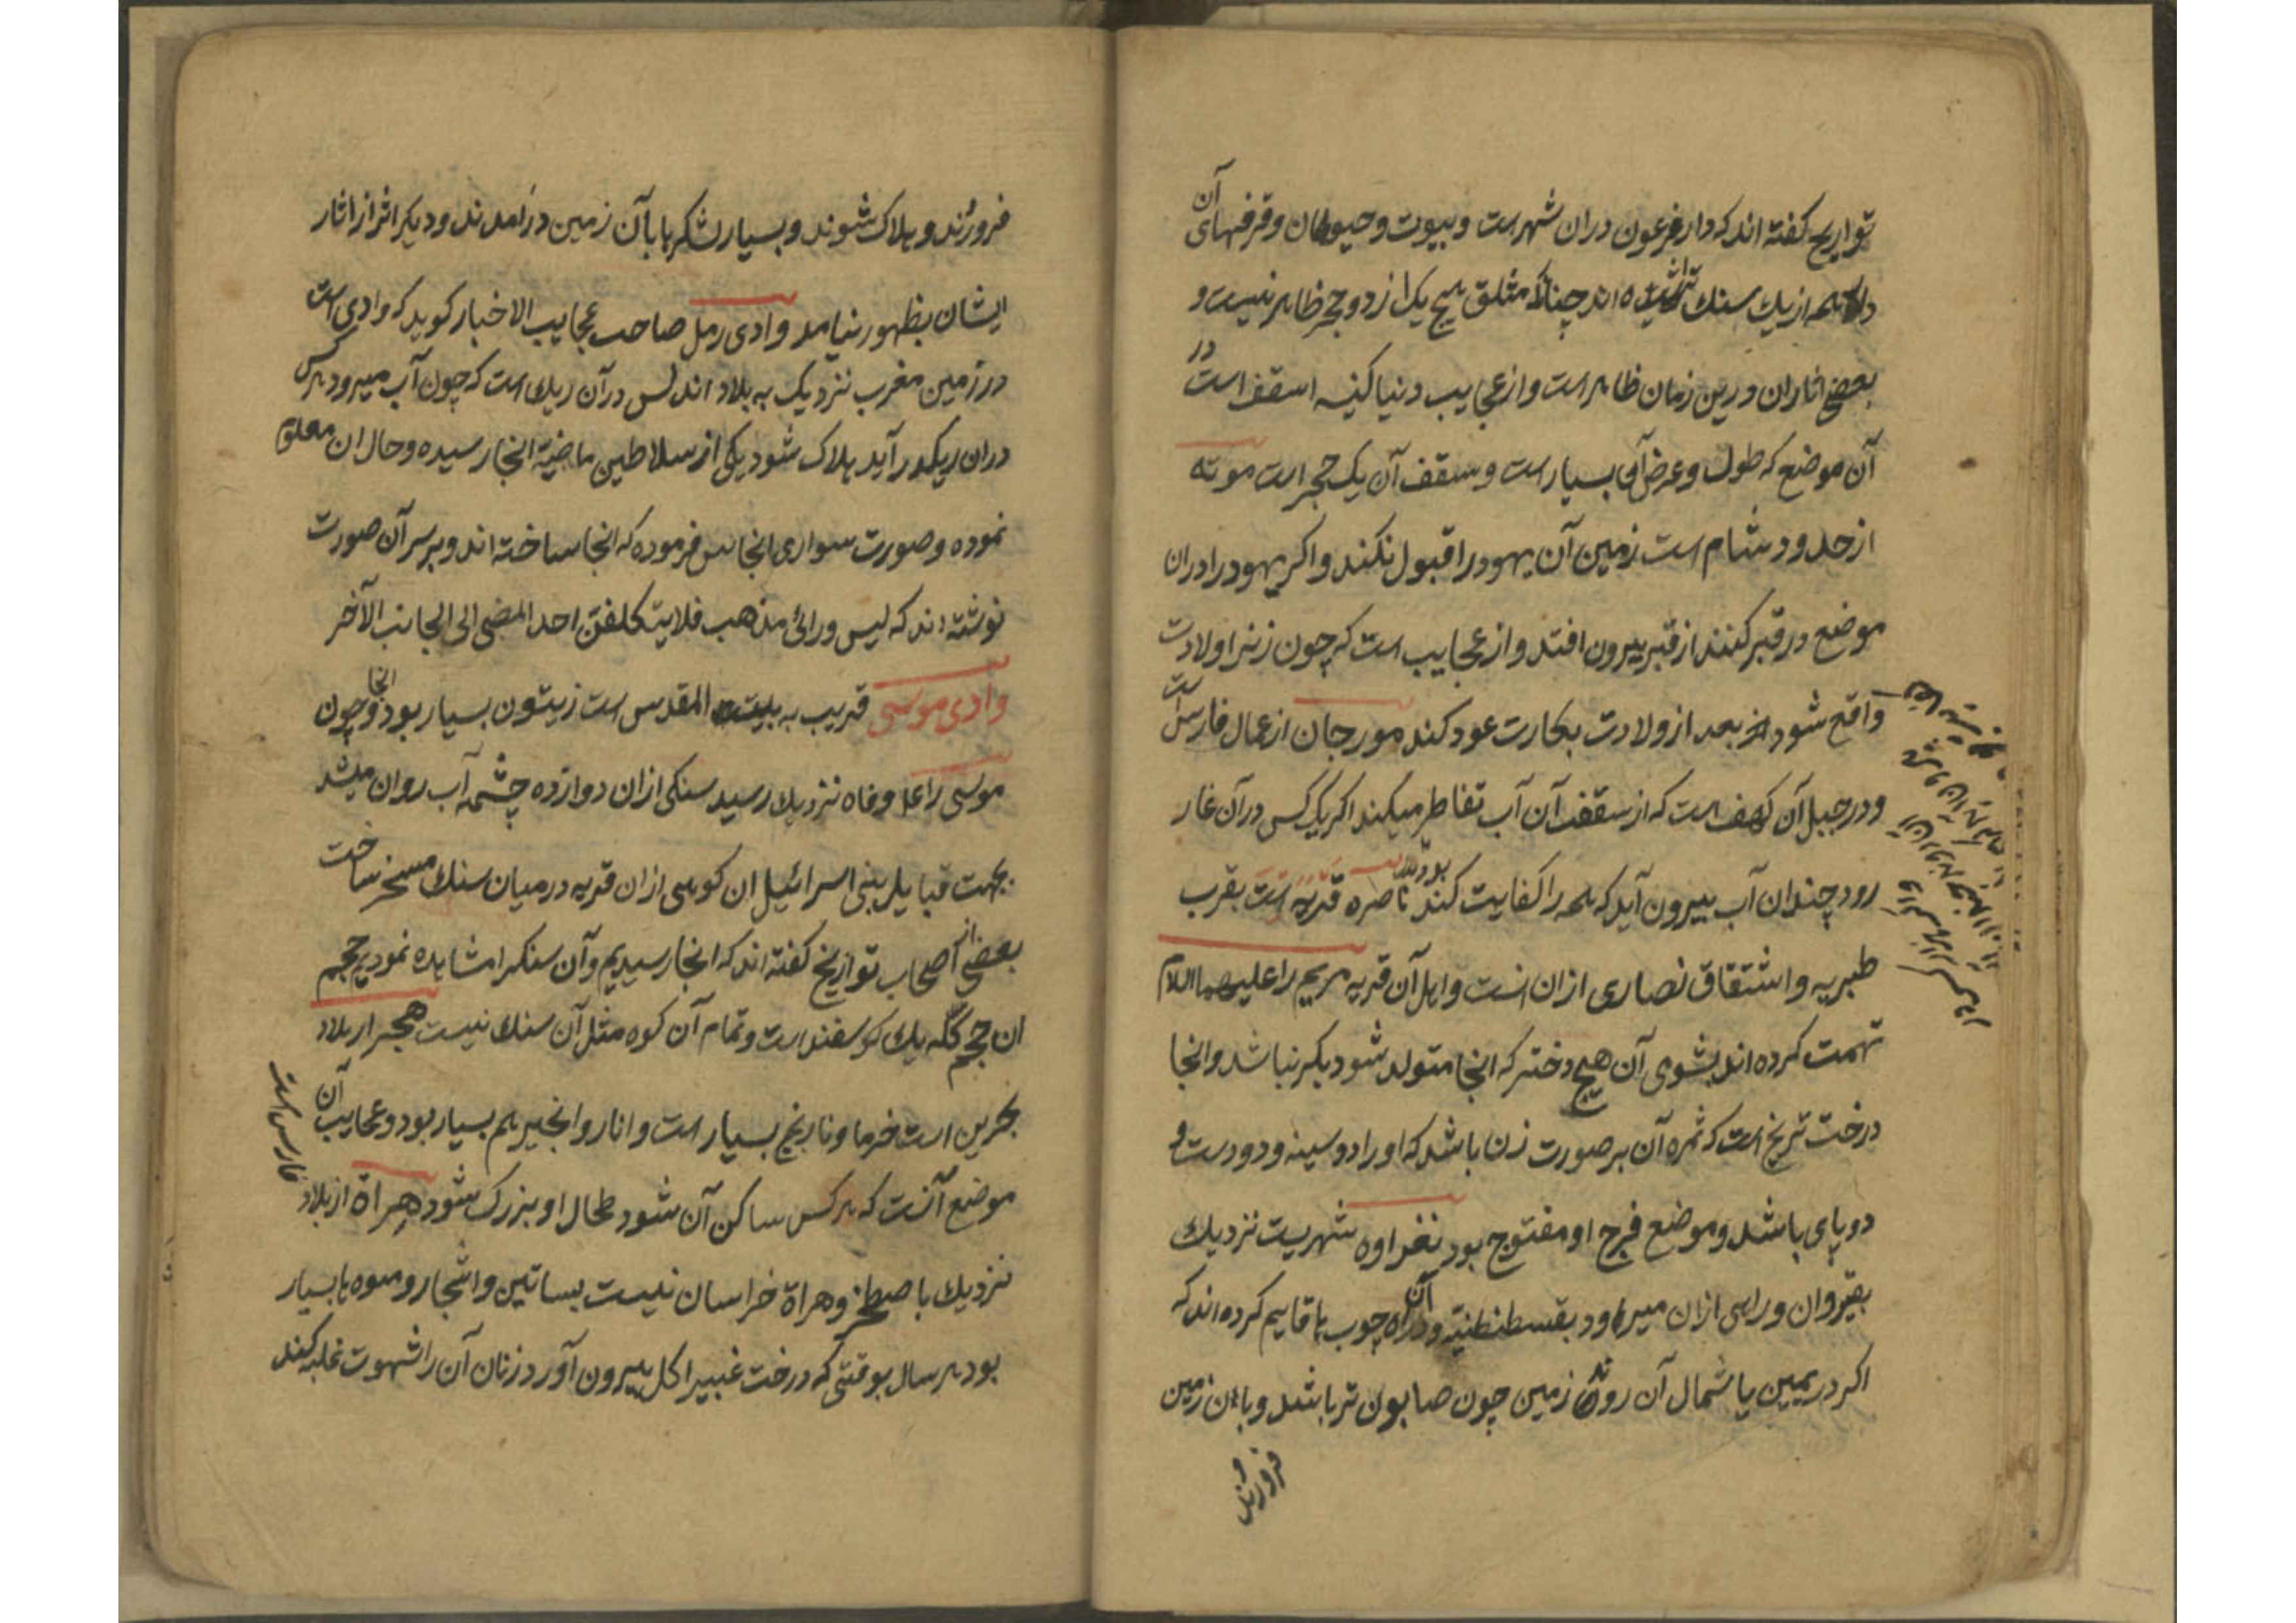 تواریخ کفته اند که دار فرعون دران شهرست وبیوت وحیوطان وقرفهای آن
همه از یك سنك تراشیده اند چنانکه مثلق هیچ یك از دو حجر ظاهر نیست و
بعضی اثاران ورین زمان ظاهر است واز عجایب دنیا کنیسه اسقف است در
آن موضع که طول وعرض آن بسیار است وسقف آن یک حجر است موته
از حدود شام است زمین آن یهود را قبول نکند واکر یهود را دران
موضع در قبر کنند از قبر بیرون افتد واز عجایب است که چون زنرا ولادت
واقع شود بعد از ولادت بکارت عود کند مورجان از عمال فارس است
ودر جبل آن کهف است که از سقف آن آب تقاطر میکند اکر یک کس درآن غار
رود چندان آب بیرون آید که همه را کفایت کند ناصره قریه است بقرب
طبریه واشتقاق نصاری از ان است واهل آن قریه مریم را علیهما السلام
تهمت کرده اند بشوی آن هیچ دختر که انجا متولد شود بکر نباشد وانجا
درخت ترنج است که ثمره آن بر صورت زن باشد که اورا دو سینه ودو دست و
دو پای باشد وموضع فرج او مفتوح بود نفراوه شهریست نزدیك
بقیروان وراهی ازان میرود بقسطنطنیه ودر راه آن چوب ها قایم کرده اند که
اکر در یمین یا شمال آن روند زمین چون صابون تر باشد وبان زمین
فرورند و
فرورند وهلاک شوند وبسیار لشکرها بآن زمین درآمدند ودیکر اثر از اثار
ایشان بظهور نیامد وادی رمل صاحب عجایب الاخبار کوید که وادی است
در زمین مغرب نزدیک به بلاد اندلس درآن ریك است که چون آب میرود هرکس
دران ریک در آید هلاک شود یکی از سلاطین ماضیه انجا رسیده وحال ان معلوم
نموده وصورت سواری انجا فرموده که انجا ساخته اند وبر سر آن صورت
نوشته اند که لیس ورائی مذهب فلا یتکلفن احد المضی الی الجانب الآخر
وادی موسی قریب به بیت المقدس است زیتون بسیار بود انجا وچون
موسی را وفاه نزدیك رسید سنکی ازان دوازده چشمه آب روان میشد
بجهت قبایل بنی اسرائیل ان کوهی ازان قریه درمیان سنك مسخر ساخت
بعضی از اصحاب تواریخ کفته اند که انجا رسیدیم وآن سنکرا مشاهده نمودیم حجم
ان حجم کله یك کوسفند است وتمام آن کوه مثل آن سنك نیست هجر از بلاد
بحرین است خرما ونارنج بسیار است وانار وانجیر هم بسیار بود وعجایب آن
موضع آنست که هرکس ساکن آن شود طحال او بزرک شود هراة از بلاد
فارس است
نزدیك باصطخر وهراة خراسان نیست بساتین واشجار ومیوه ها بسیار
بود هر سال بوقتی که درخت غبیرا کل بیرون آورد زنان آن را شهوت غلبه کند